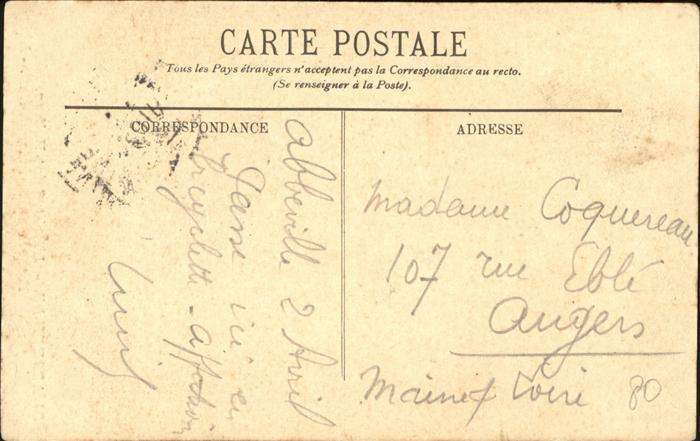 CARTE POSTALE
Tous les Pays étrangers n'acceptent pas la Correspondance au recto.
(Se renseigner à la Poste).
CORRESPONDANCE
Abbeville 2 Avril
Passe ici en
bicyclette - affection
ADRESSE
Madame Coquereau
107 rue Eblé
Angers
Maine & Loire
80